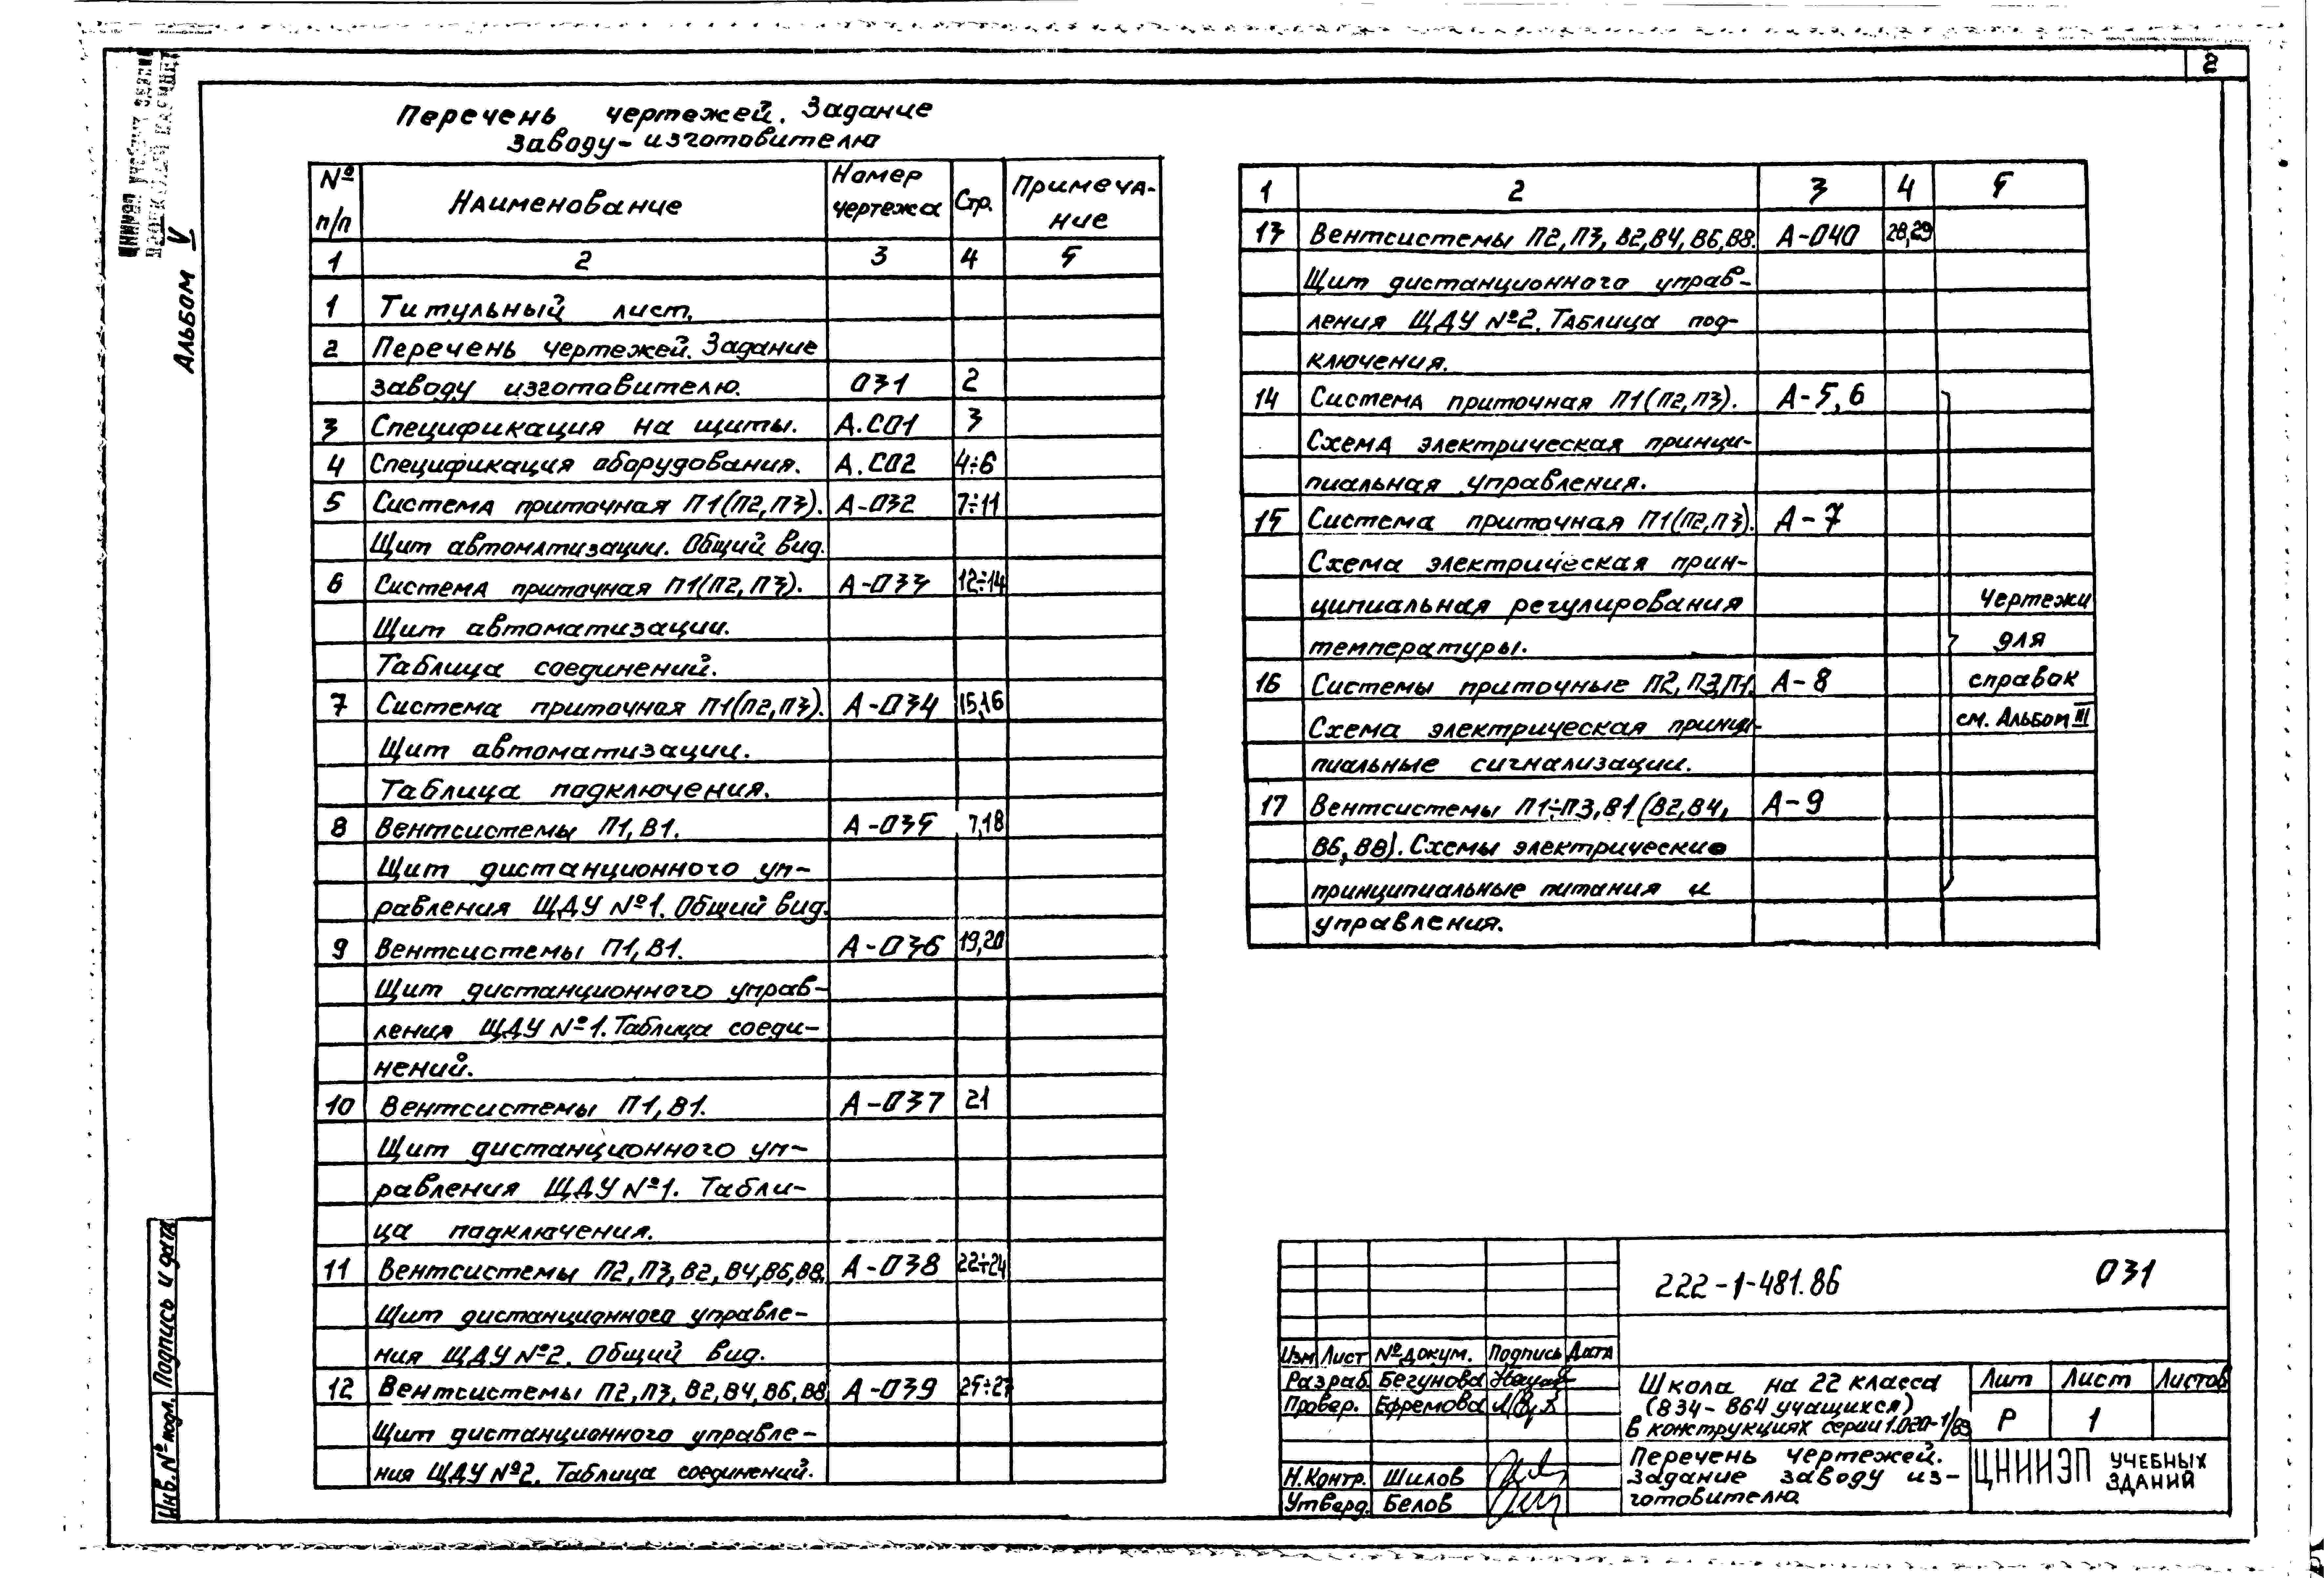 2
Альбом V
Перечень чертежей. Задание
заводу-изготовителю
№ п/п Наименование Номер чертежа Стр. Примечание
1 2 3 4 5
1 Титульный лист.
2 Перечень чертежей. Задание
заводу изготовителю. 031 2
3 Спецификация на щиты. А.СО1 3
4 Спецификация оборудования. А.СО2 4÷6
5 Система приточная П1(П2,П3). А-032 7÷11
Щит автоматизации. Общий вид.
6 Система приточная П1(П2,П3). А-033 12÷14
Щит автоматизации.
Таблица соединений.
7 Система приточная П1(П2,П3). А-034 15,16
Щит автоматизации.
Таблица подключения.
8 Вентсистемы П1, В1. А-035 7,18
Щит дистанционного уп-
равления ЩДУ №1. Общий вид.
9 Вентсистемы П1, В1. А-036 19,20
Щит дистанционного управ-
ления ЩДУ №1. Таблица соеди-
нений.
10 Вентсистемы П1, В1. А-037 21
Щит дистанционного уп-
равления ЩДУ №1. Табли-
ца подключения.
11 Вентсистемы П2, П3, В2, В4, В6, В8. А-038 22÷24
Щит дистанционного управле-
ния ЩДУ №2. Общий вид.
12 Вентсистемы П2, П3, В2, В4, В6, В8 А-039 25÷27
Щит дистанционного управле-
ния ЩДУ №2. Таблица соединений.
1 2 3 4 5
13 Вентсистемы П2, П3, В2, В4, В6, В8. А-040 28,29
Щит дистанционного управ-
ления ЩДУ №2. Таблица под-
ключения.
14 Система приточная П1(П2,П3). А-5,6
Схема электрическая принци-
пиальная управления.
15 Система приточная П1(П2,П3). А-7
Схема электрическая прин-
ципиальная регулирования
температуры.
16 Системы приточные П2, П3, П1. А-8
Схема электрическая принци-
пиальные сигнализации.
17 Вентсистемы П1÷П3, В1 (В2, В4, А-9
В6, В8). Схемы электрические
принципиальные питания и
управления.
Чертежи
для
справок
см. Альбом III
222-1-481.86 031
Изм Лист № докум. Подпись Дата
Разраб. Бегунова
Провер. Ефремова
Н.Контр. Шилов
Утверд. Белов
Школа на 22 класса
(834-864 учащихся)
в конструкциях серии 1.020-1/83
Перечень чертежей.
Задание заводу из-
готовителю
Лит Лист Листов
Р 1
ЦНИИЭП УЧЕБНЫХ
ЗДАНИЙ
Инв.№ подл. Подпись и дата